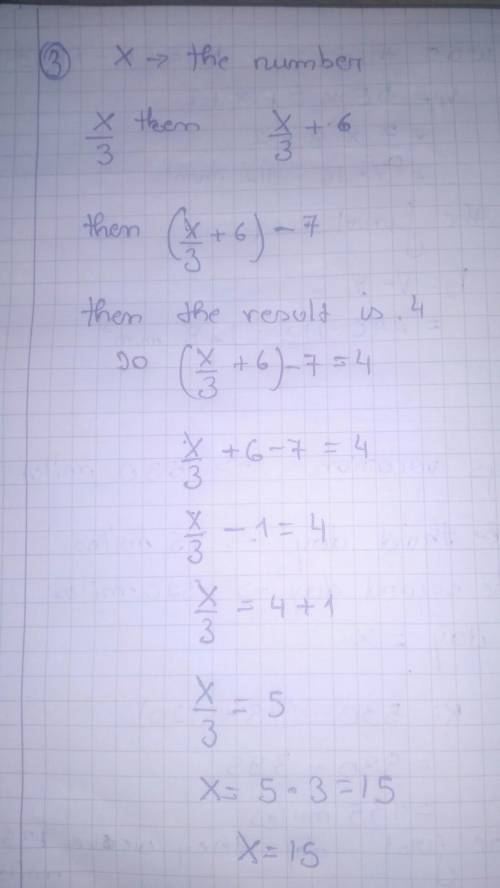 ③ X → the number
X/3 then X/3 + 6
then (X/3 + 6) - 7
then the result is 4
so (X/3 + 6) - 7 = 4
X/3 + 6 - 7 = 4
X/3 - 1 = 4
X/3 = 4 + 1
X/3 = 5
X = 5 · 3 = 15
X = 15